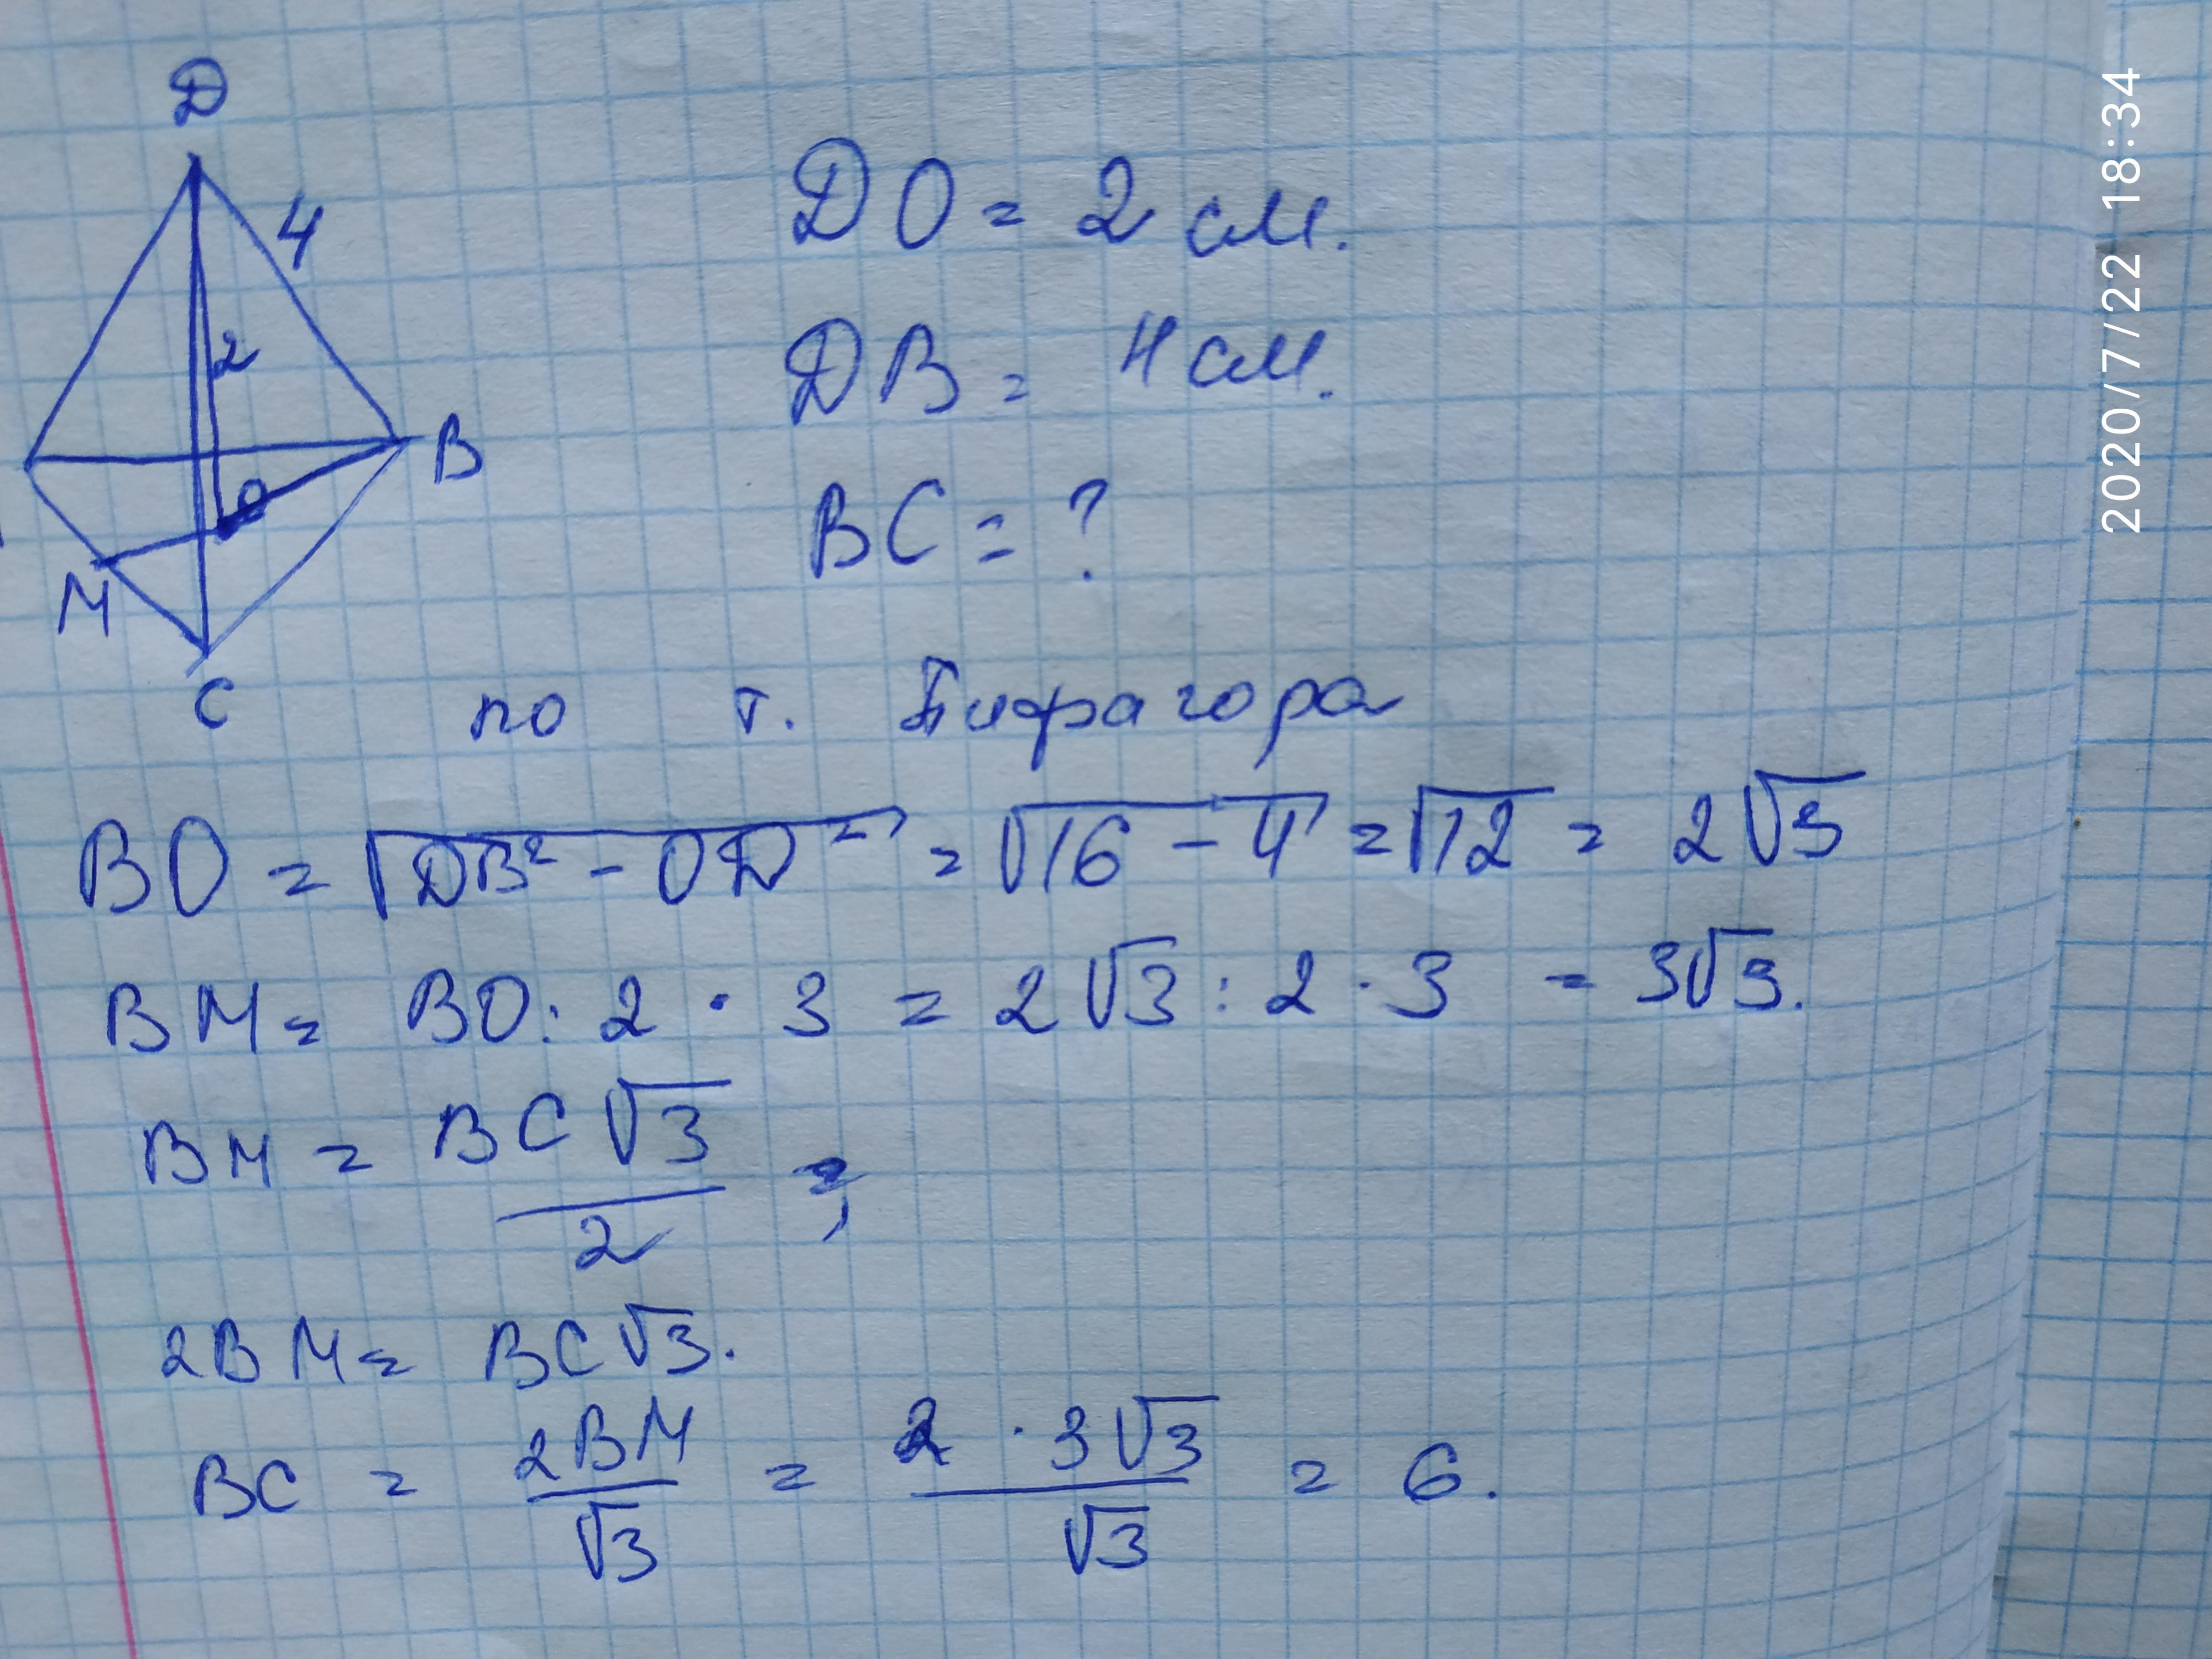 D
4
2
B
O
M
C
DO = 2 см.
DB = 4 см.
BC = ?
по т. Пифагора
BO = √DB² - OD² = √16 - 4 = √12 = 2√3
BM = BO : 2 · 3 = 2√3 : 2 · 3 = 3√3.
BM = BC√3 / 2 ;
2BM = BC√3.
BC = 2BM / √3 = 2 · 3√3 / √3 = 6.
2020/7/22 18:34